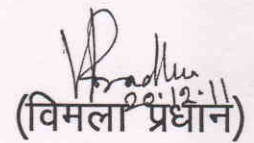 VPradhan
20.12.11
(विमला प्रधान)